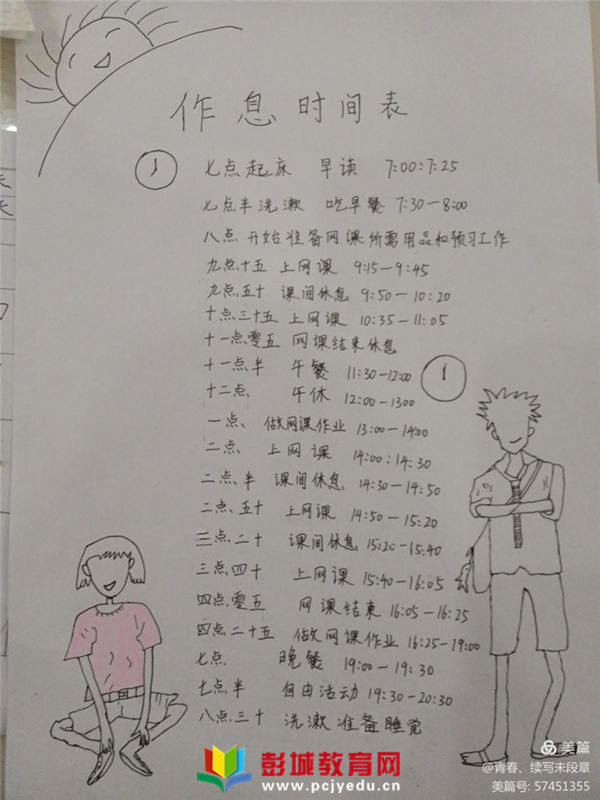 作息时间表
七点起床 早读 7:00:7:25
七点半洗漱 吃早餐 7:30—8:00
八点 开始准备网课所需用品和预习工作
九点十五 上网课 9:15—9:45
九点五十 课间休息 9:50—10:20
十点三十五 上网课 10:35—11:05
十一点零五 网课结束休息
十一点半 午餐 11:30—12:00
十二点、 午休 12:00—13:00
一点、 做网课作业 13:00—14:00
二点、 上网课 14:00:14:30
二点半 课间休息 14:30—14:50
二点、五十 上网课 14:50—15:20
三点、二十 课间休息 15:20—15:40
三点四十 上网课 15:40—16:05
四点、零五 网课结束 16:05—16:25
四点二十五 做网课作业 16:25—19:00
七点 晚餐 19:00—19:30
七点半 自由活动 19:30—20:30
八点三十 洗漱准备睡觉
彭城教育网
www.pcjyedu.cn
美篇
@青春、续写未段章
美篇号: 57451355